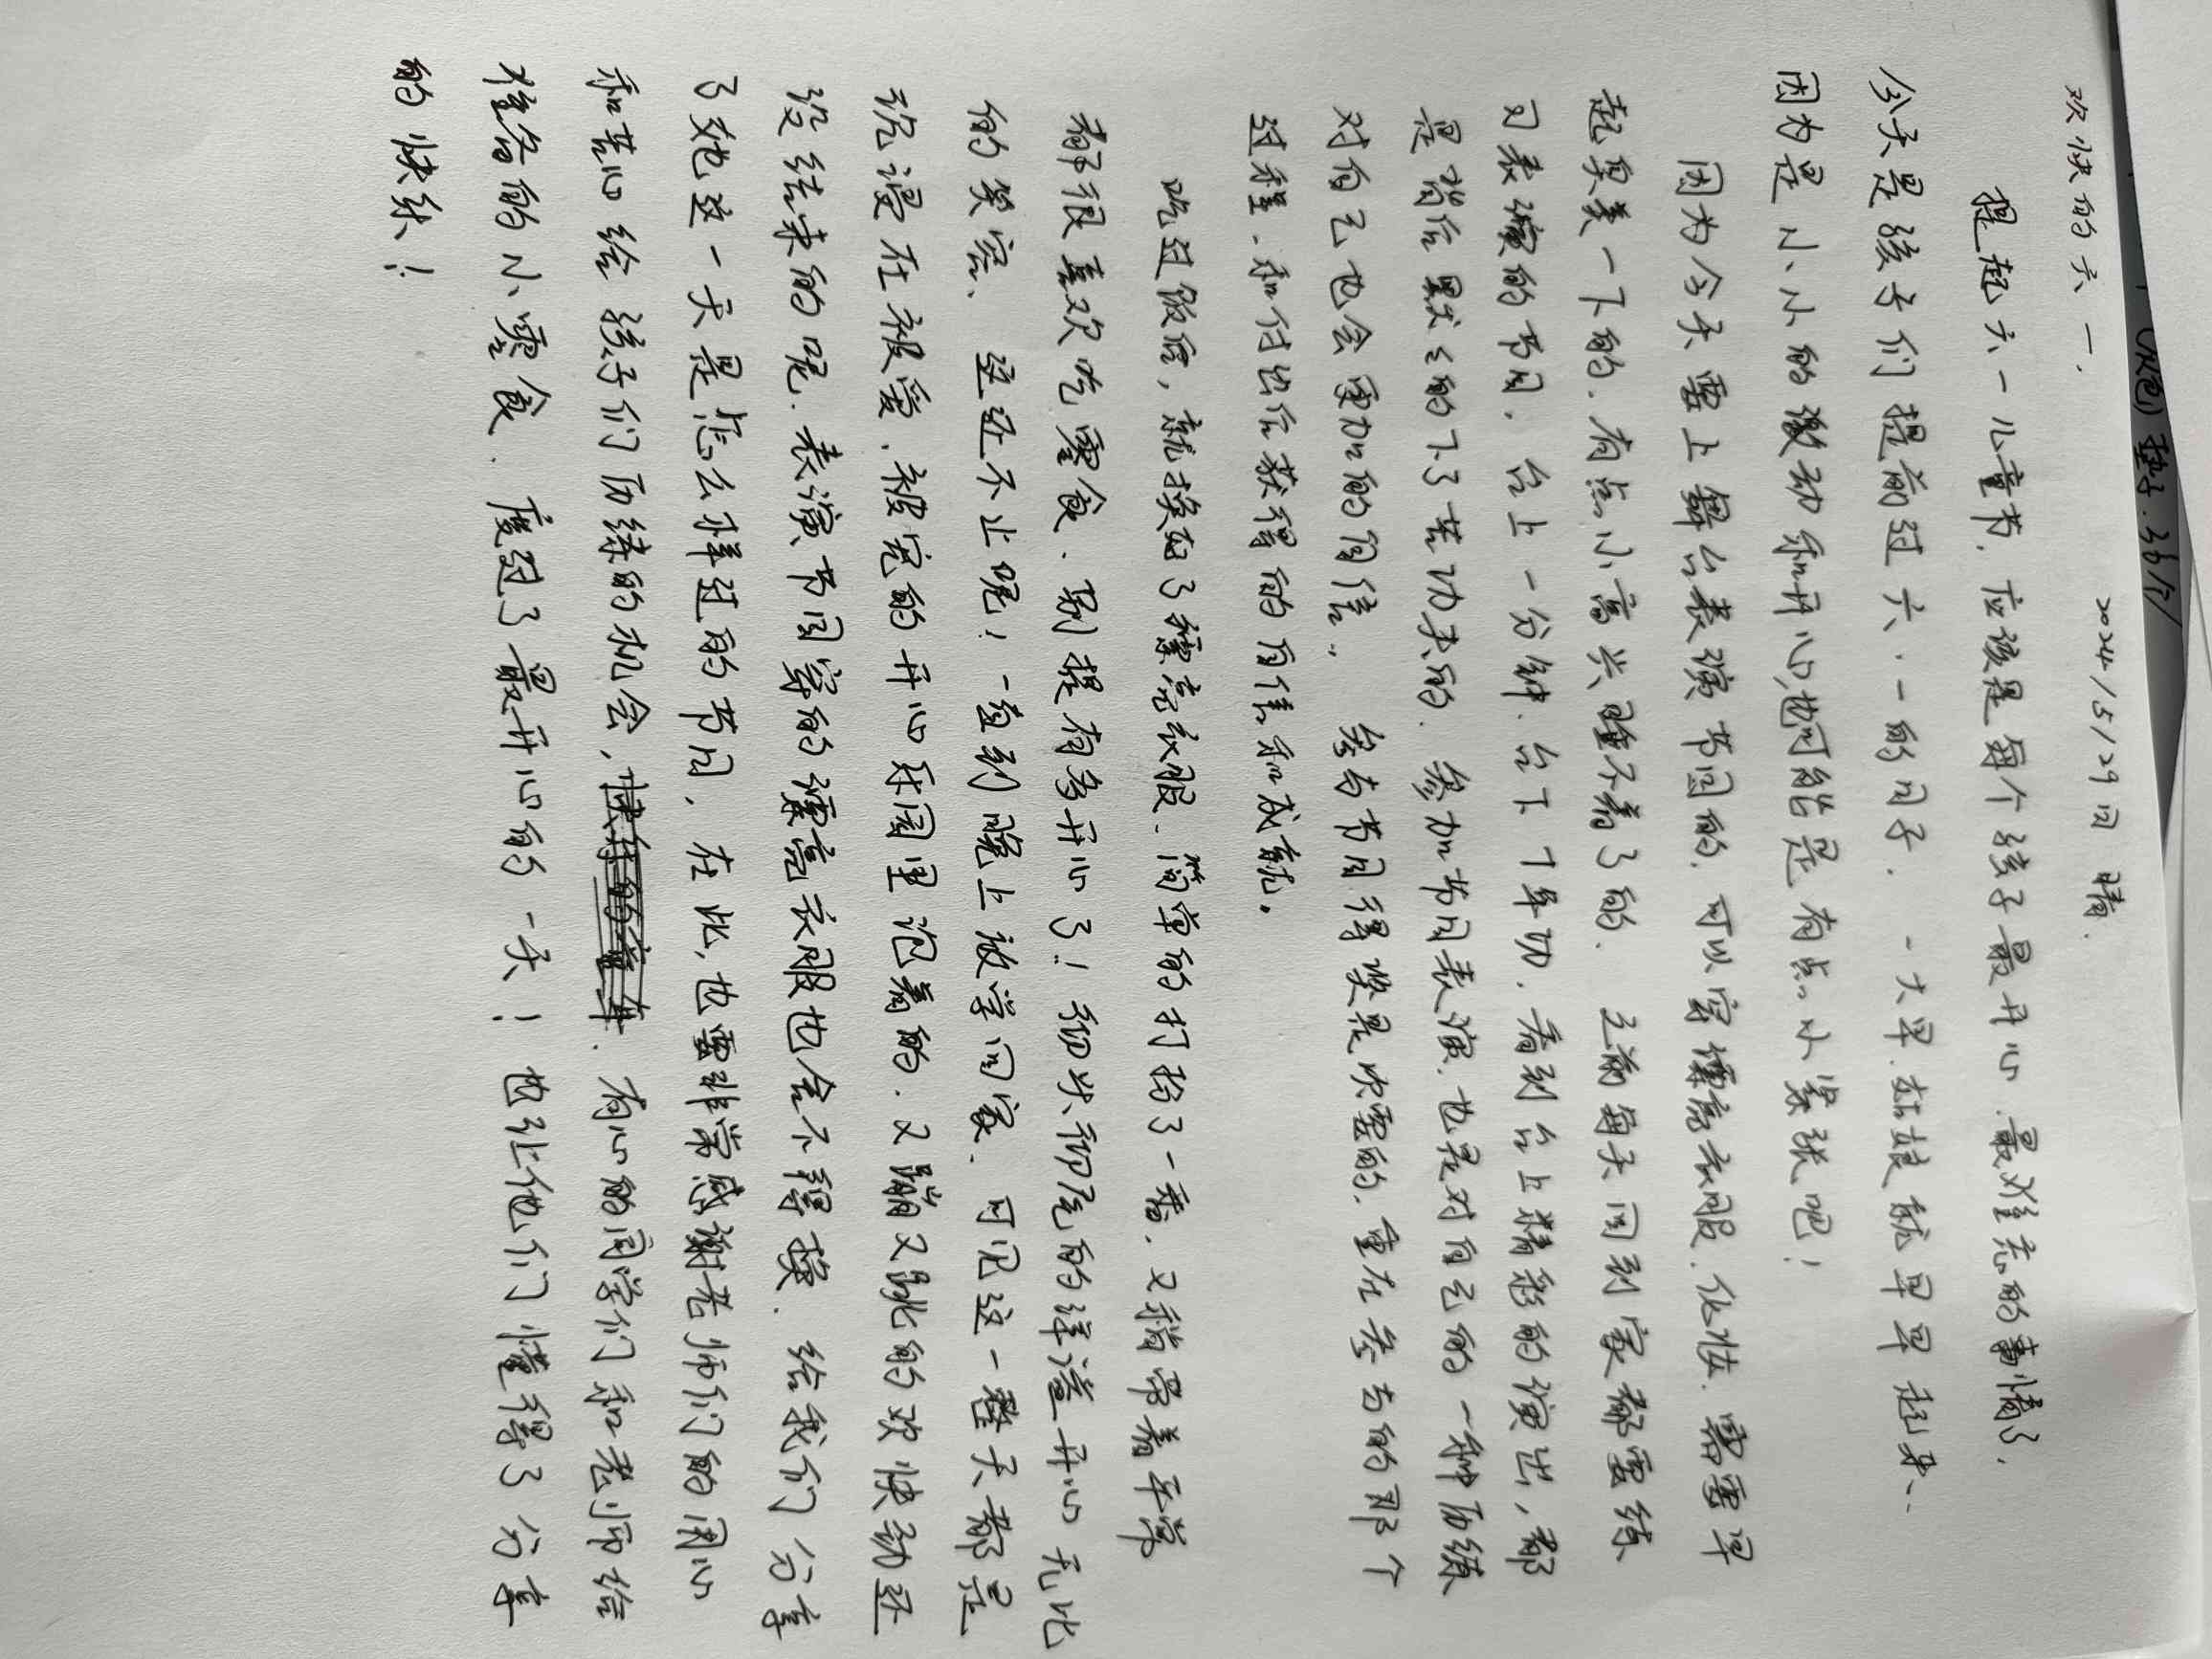 欢快的六一.
2024/5/29日 晴.
提起六一儿童节.应该是每个孩子最开心.最难忘的事情了.
今天是孩子们提前过六.一的日子.一大早.姑娘就早早起来..
因为是小小的激动和开心,也可能是有点小紧张吧!
因为今天要上舞台表演节目的.可以穿漂亮衣服.化妆.需要早
起臭美一下的.有点小高兴睡不着了的.之前每天回到家都要练
习表演的节目.台上一分钟.台下十年功.看到台上精彩的演出,都
是背后默默的下了苦功夫的.参加节目表演.也是对自己的一种历练
对自己也会更加的自信..参与节目得奖是次要的.重在参与的那个
过程.和付出后获得的自信和成就.
吃过饭后,就换好了漂亮衣服.简单的打扮了一番.又稍带着平常
都很喜欢吃零食.别提有多开心了!彻头彻尾的洋溢开心无比
的笑容.还不止呢!一直到晚上放学回家.可见这一整天都是
沉浸在被爱.被宠的开心乐园里泡着的.又蹦又跳的欢快劲还
没结束的呢.表演节目穿的漂亮衣服也舍不得换.给我们分享
了她这一天是怎么样过的节日.在此,也要非常感谢老师们的用心
和苦心给孩子们历练的机会,有心的同学们和老师给
准备的小零食.度过了最开心的一天!也让他们懂得了分享
的快乐!
垫子.36个